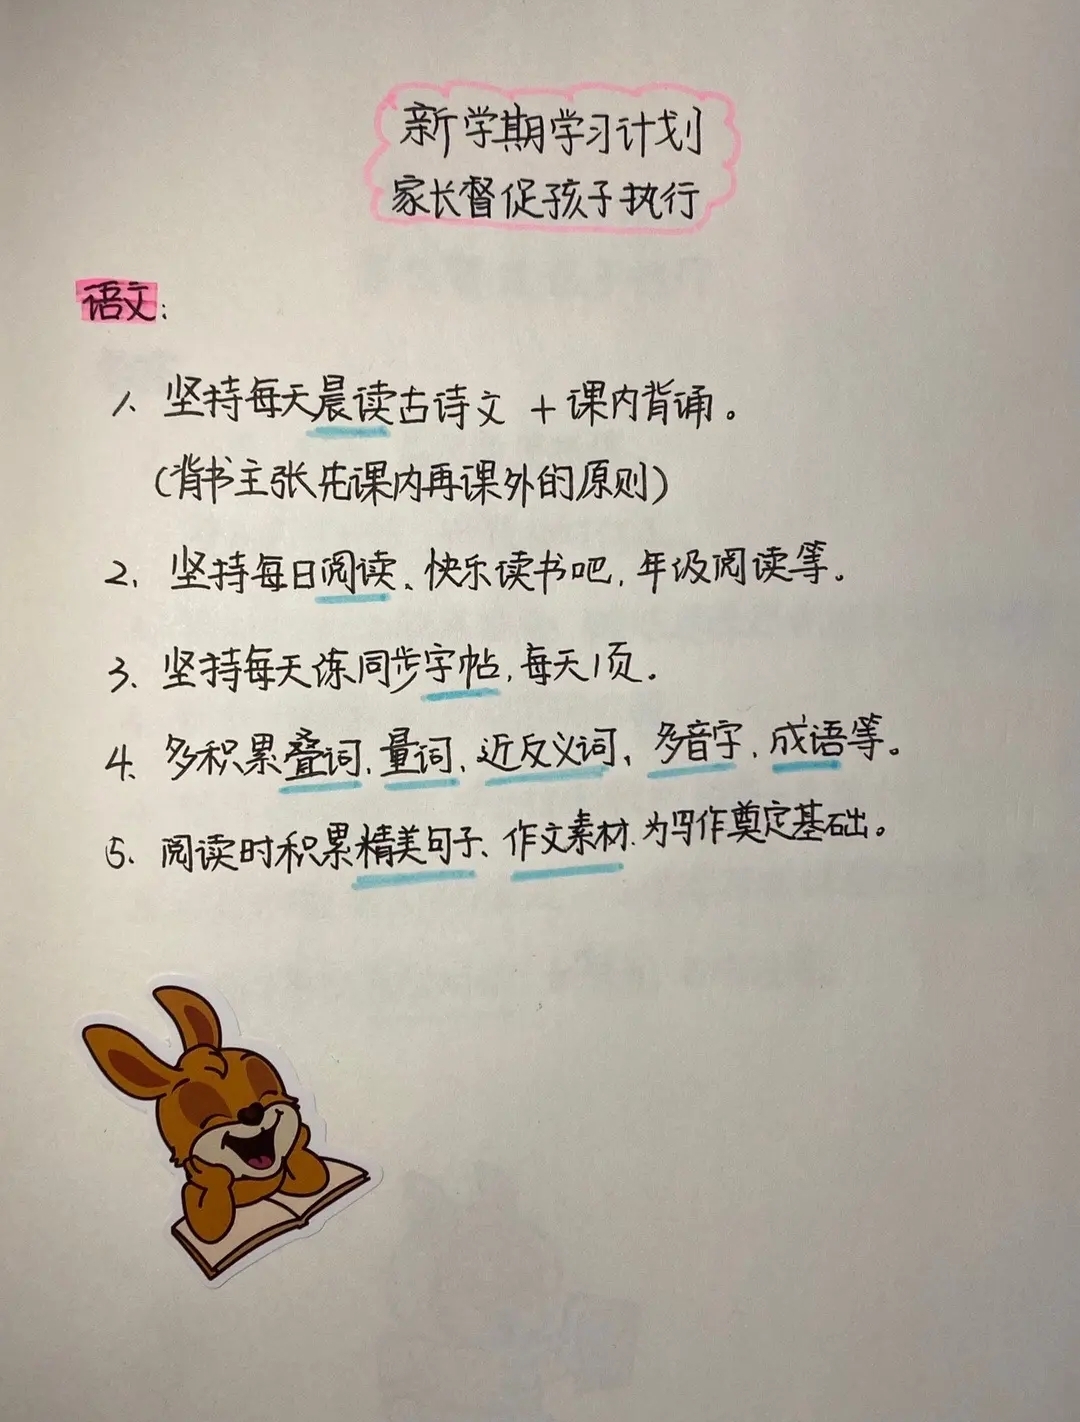 新学期学习计划
家长督促孩子执行
语文:
1、坚持每天晨读古诗文 + 课内背诵。
(背书主张先课内再课外的原则)
2、坚持每日阅读、快乐读书吧,年级阅读等。
3、坚持每天练同步字帖,每天1页。
4、多积累叠词、量词、近反义词、多音字、成语等。
5、阅读时积累精美句子、作文素材.为写作奠定基础。